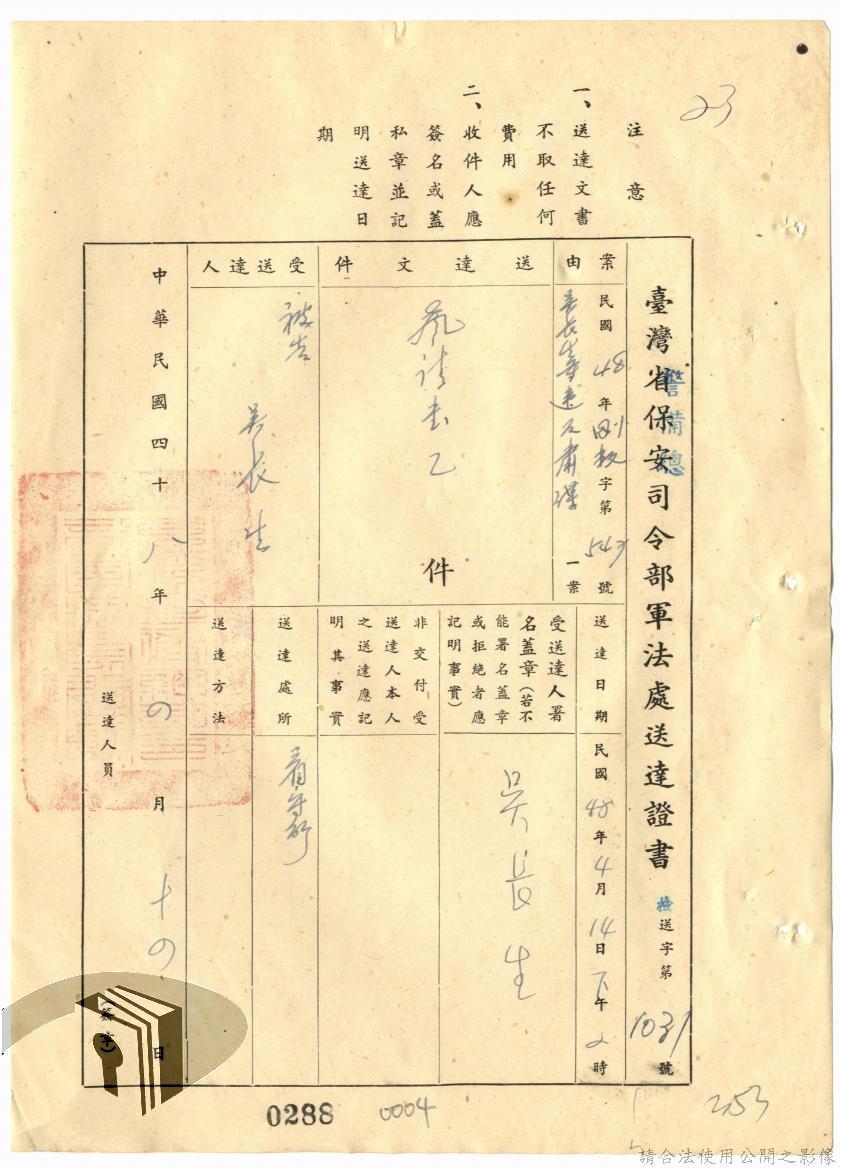 23
注意
一、送達文書
不取任何
費用
二、收件人應
簽名或蓋
私章並記
明送達日
期
臺灣省保安司令部軍法處送達證書
警備總
檢送字第1031號
案由
民國48年 字第543號
吳長生等
一案
送達文件
乙件
受送達人
被告
吳長生
送達日期
民國48年4月14日下午2時
受送達人署
名蓋章(若不
能署名蓋章
或拒絕者應
記明事實)
吳長生
非交付受
送達人本人
之送達應記
明其事實
送達處所
看守所
送達方法
中華民國四十八年四月十四日
送達人員
(簽章)
0288
0004
253
請合法使用公開之影像